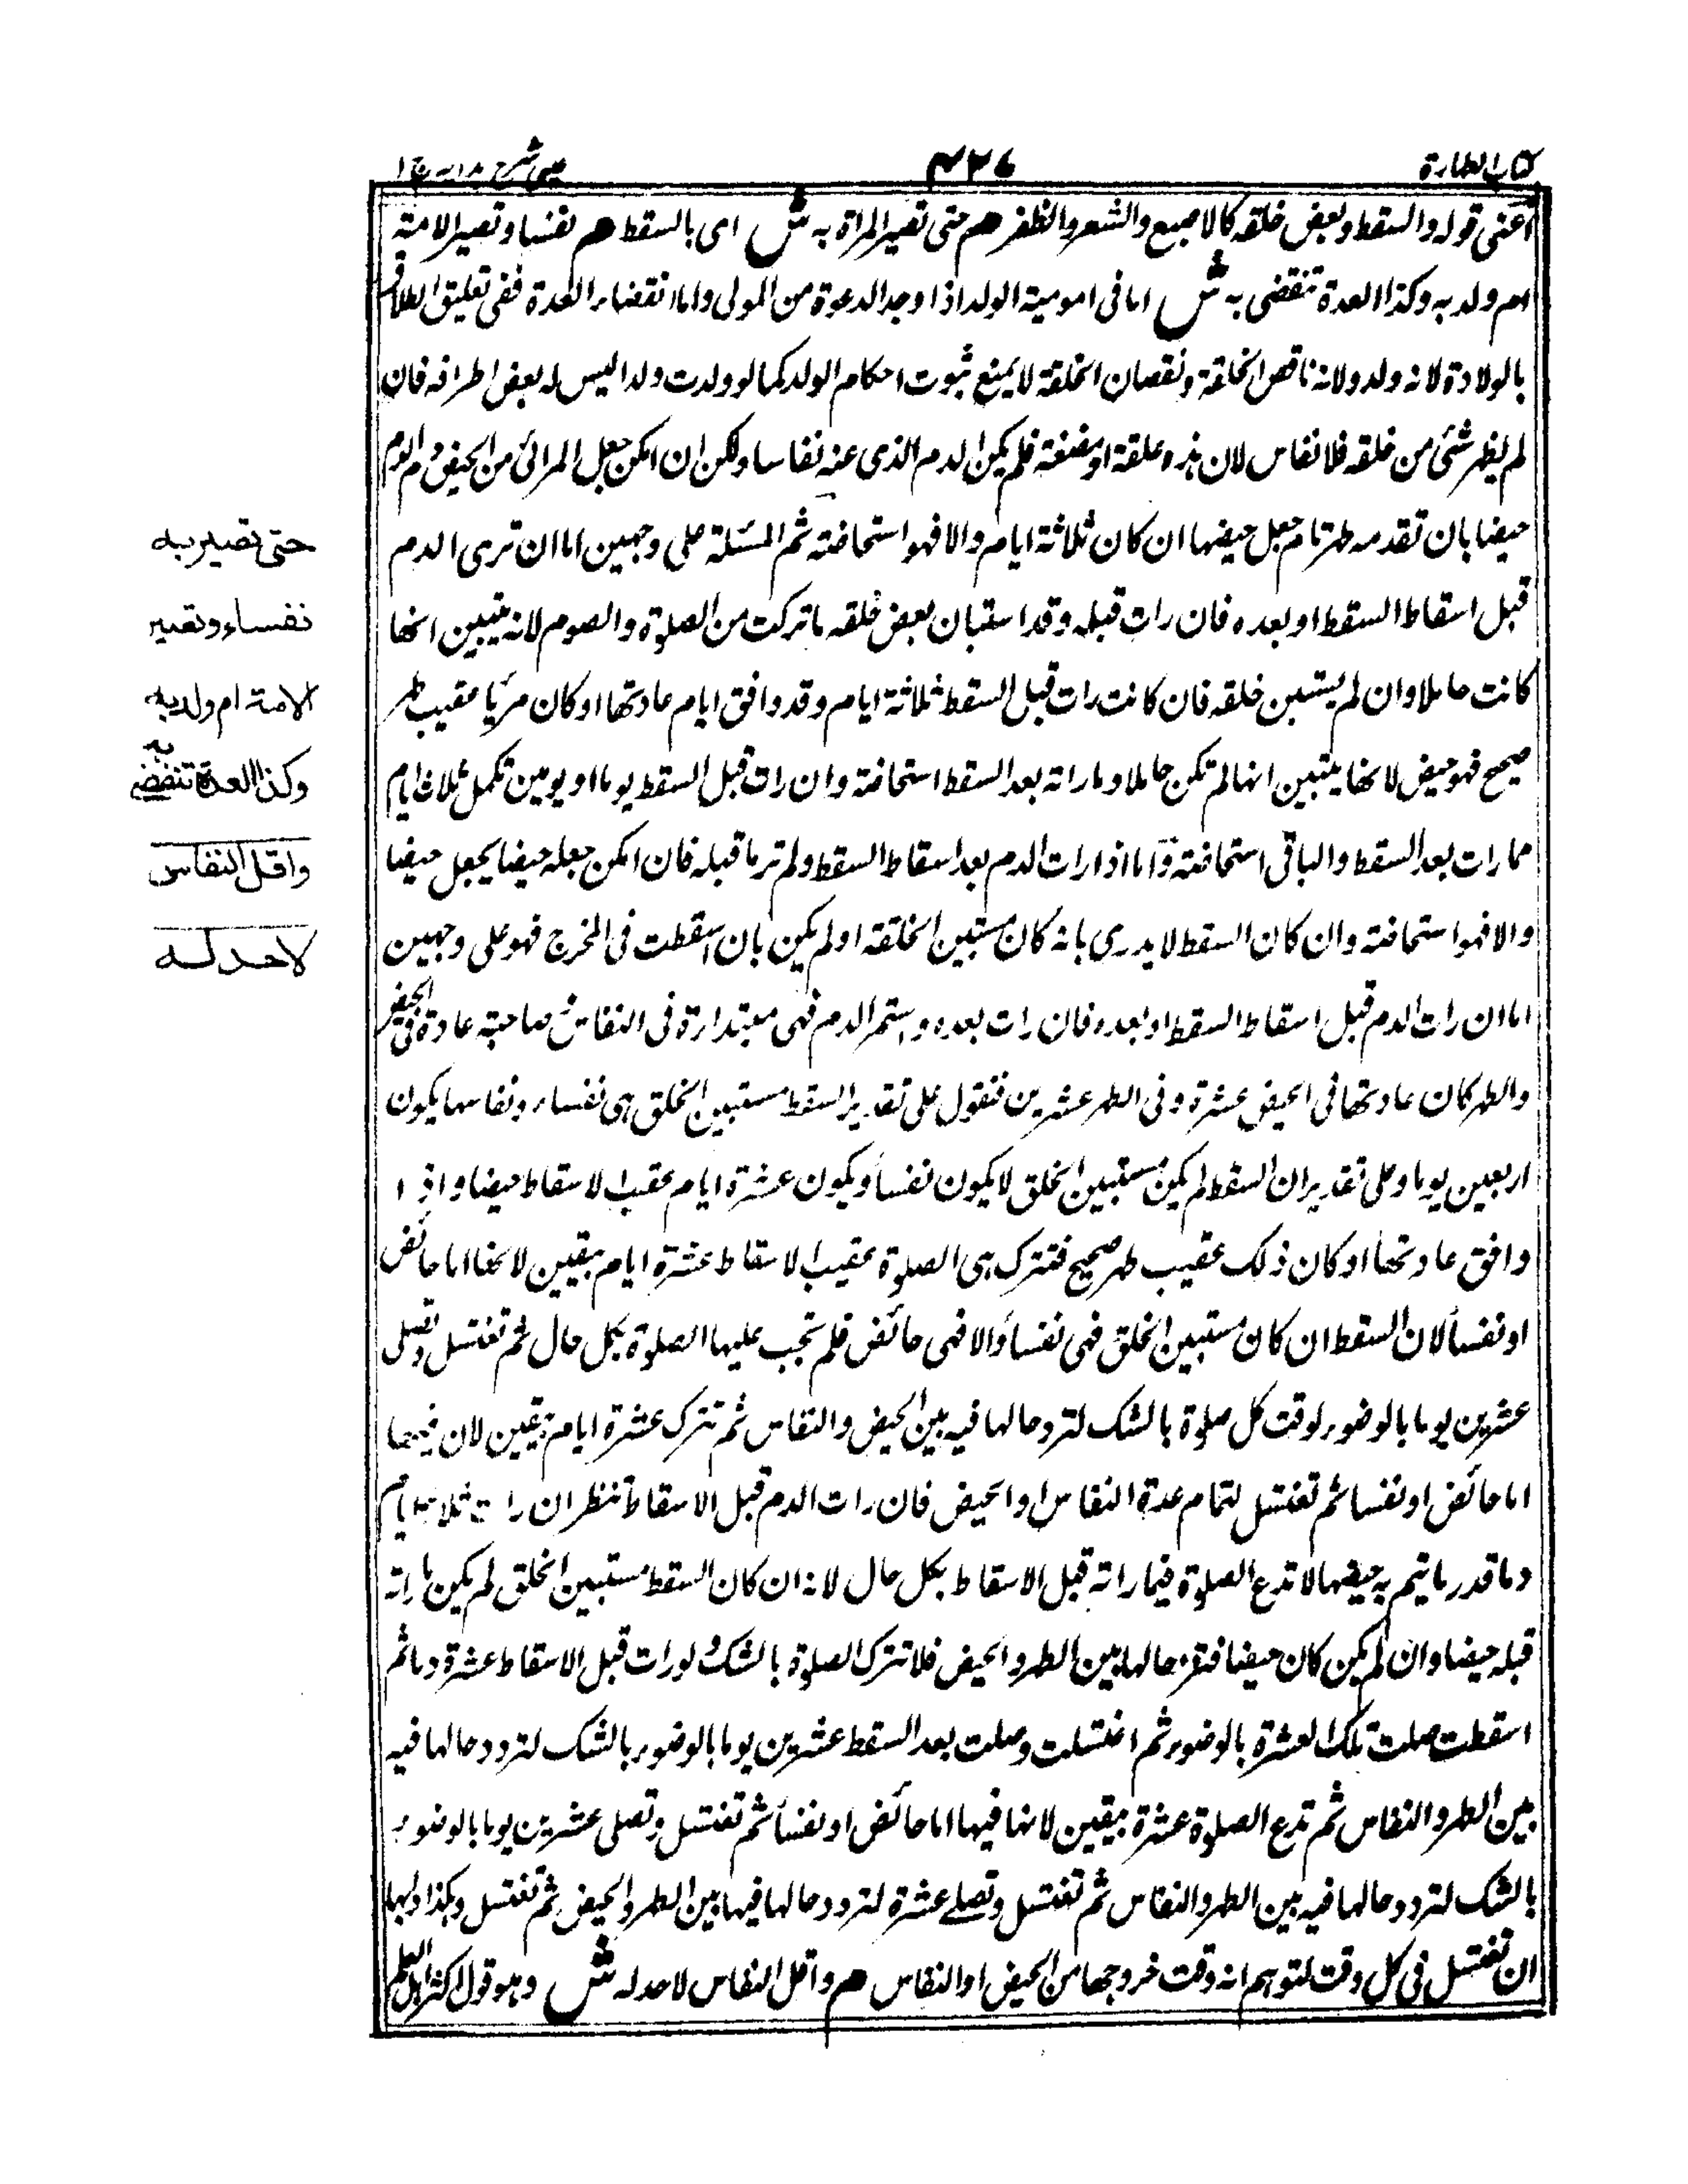 كتاب الطهارة
٤٣٦
عينى شرح هداية ج ١
أعنى قوله والسقط وبعض خلقه كالاصبع والشعر والظفر هم حتى تصير المراة به ش اى بالسقط هم نفسا وتصير الامة
ام ولد به وكذا العدة تنقضى به ش اما فى امومية الولد اذا وجد الدعوة من المولى واما انقضاء العدة ففى تعليق الطلاق
بالولادة لانه ولد ولانه ناقص الخلقة ونقصان الخلقة لا يمنع ثبوت احكام الولد كما لو ولدت ولدا ليس له بعض اطرافه فان
لم يظهر شئى من خلقه فلا نفاس لان هذه علقة او مضغة فلم يكن الدم الذى عنه نفاسا ولكن ان امكن جعل المرائى من الحيض دم الدم
حيضا بان تقدمه طهر تام جعل حيضها ان كان ثلاثة ايام والا فهو استحاضته ثم المسئلة على وجهين اما ان ترى الدم
قبل اسقاط السقط او بعده فان رات قبله وقد استبان بعض خلقه ما تركت من الصلوة والصوم لانه يتبين انها
كانت حاملا وان لم يستبن خلقه فان كانت رات قبل السقط ثلاثة ايام وقد وافق ايام عادتها او كان مرئيا عقيب طهر
صحيح فهو حيض لانها يتبين انها لم تكن حاملا وما راته بعد السقط استحاضة وان رات قبل السقط يوما او يومين تكمل ثلاث ايام
مما رات بعد السقط والباقى استحاضة واما اذا رات الدم بعد اسقاط السقط ولم تر ما قبله فان امكن جعله حيضا يجعل حيضا
والا فهو استحاضته وان كان السقط لا يدرى بانه كان مستبين الخلقة او لم يكن بان اسقطت فى المخرج فهو على وجهين
اما ان رات الدم قبل اسقاط السقط او بعده فان رات بعده واستمر الدم فهى مبتدارة فى النفاس صاحبته عادة فى الحيض
والطهر كان عادتها فى الحيض عشرة وفى الطهر عشرين فنقول على تقدير السقط مستبين الخلق هى نفساء ونفاسها يكون
اربعين يوما وعلى تقدير ان السقط لم يكن مستبين الخلق لا يكون نفسأ ويكون عشرة ايام عقيب الاسقاط حيضا واذا
وافق عادتها او كان ذلك عقيب طهر صحيح فتترك هى الصلوة عقيب الاسقاط عشرة ايام بيقين لانها اما حائض
او نفسأ لان السقط ان كان مستبين الخلق فهى نفسأ والا فهى حائض فلم تجب عليها الصلوة بكل حال ثم تغتسل وتصلى
عشرين يوما بالوضوء لوقت كل صلوة بالشك لتردد حالها فيه بين الحيض والنفاس ثم تترك عشرة ايام بيقين لان فيها
اما حائض او نفسا ثم تغتسل لتمام عدة النفاس او الحيض فان رات الدم قبل الاسقاط تنظر ان رات ثلاثة ايام
دما قدر ما يتم به حيضها لا تدع الصلوة فيما راته قبل الاسقاط بكل حال لانه ان كان السقط مستبين الخلق لم يكن ما راته
قبله حيضا وان لم يكن كان حيضا فتردد حالها بين الطهر والحيض فلا تترك الصلوة بالشك ولو رات قبل الاسقاط عشرة دما ثم
اسقطت صلت تلك العشرة بالوضوء ثم اغتسلت وصلت بعد السقط عشرين يوما بالوضوء بالشك لتردد حالها فيه
بين الطهر والنفاس ثم تدع الصلوة عشرة بيقين لانها فيها اما حائض او نفسأ ثم تغتسل وتصلى عشرين يوما بالوضوء
بالشك لتردد حالها فيه بين الطهر والنفاس ثم تغتسل وتصلے عشرة لتردد حالها فيها بين الطهر والحيض ثم تغتسل وهكذا دابها
ان تغتسل فى كل وقت لتوهم انه وقت خروجها من الحيض او النفاس هم واقل النفاس لا حد له ش وهو قول اكثر اهل العلم
حتى تصير به
نفساء وتصير
الامة ام ولد به
وكذا العدة تنقضى به
واقل النفاس
لا حد له